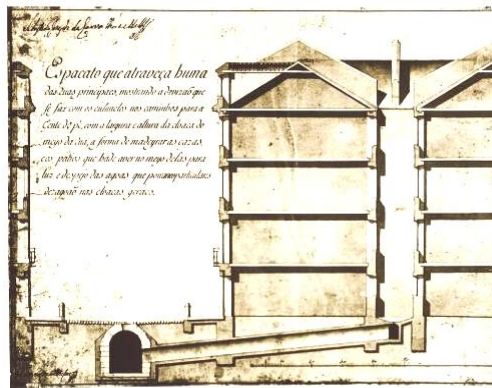 Espacato que atraveça huma
das duas principaes, mostrando a devizaõ que
se faz com os culunelos nos caminhos para a
Gente de pé, com a largura e altura da cloaca do
meyo da rua, a forma de madeyrar as cazas,
e os pateos que hade aver no meyo dellas para
luz e despejo das agoas que por
dezagoaõ nas cloacas geraes.